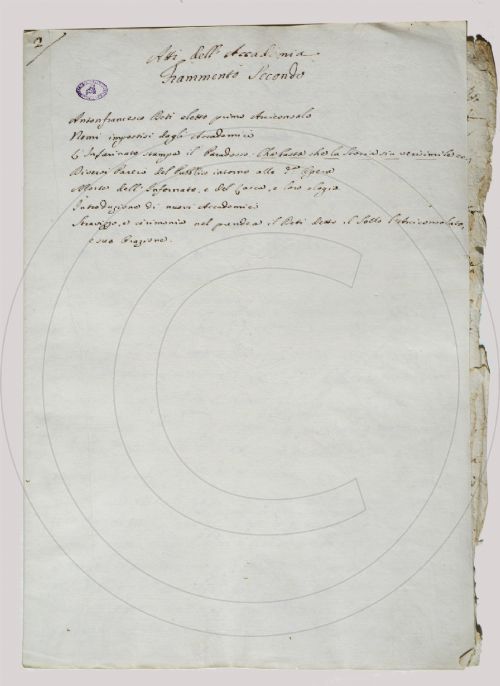 2
Atti dell'Accademia
Frammento Secondo
Antonfrancesco Boti eletto primo Arciconsolo
Nomi impostisi dagli Accademici
L'Infarinato stampa il Paradosso. Che basta che la Storia sia verisimile &c.
Diversi Pareri del Pubblico intorno alla d.ª Opera
Morte dell'Infornato, e del Casca, e loro elogia
Introduzione di nuovi Accademici
Stravizzo, e cirimonie nel prendere il Boti detto il Sollo l'Arciconsolato,
e sua Orazione.